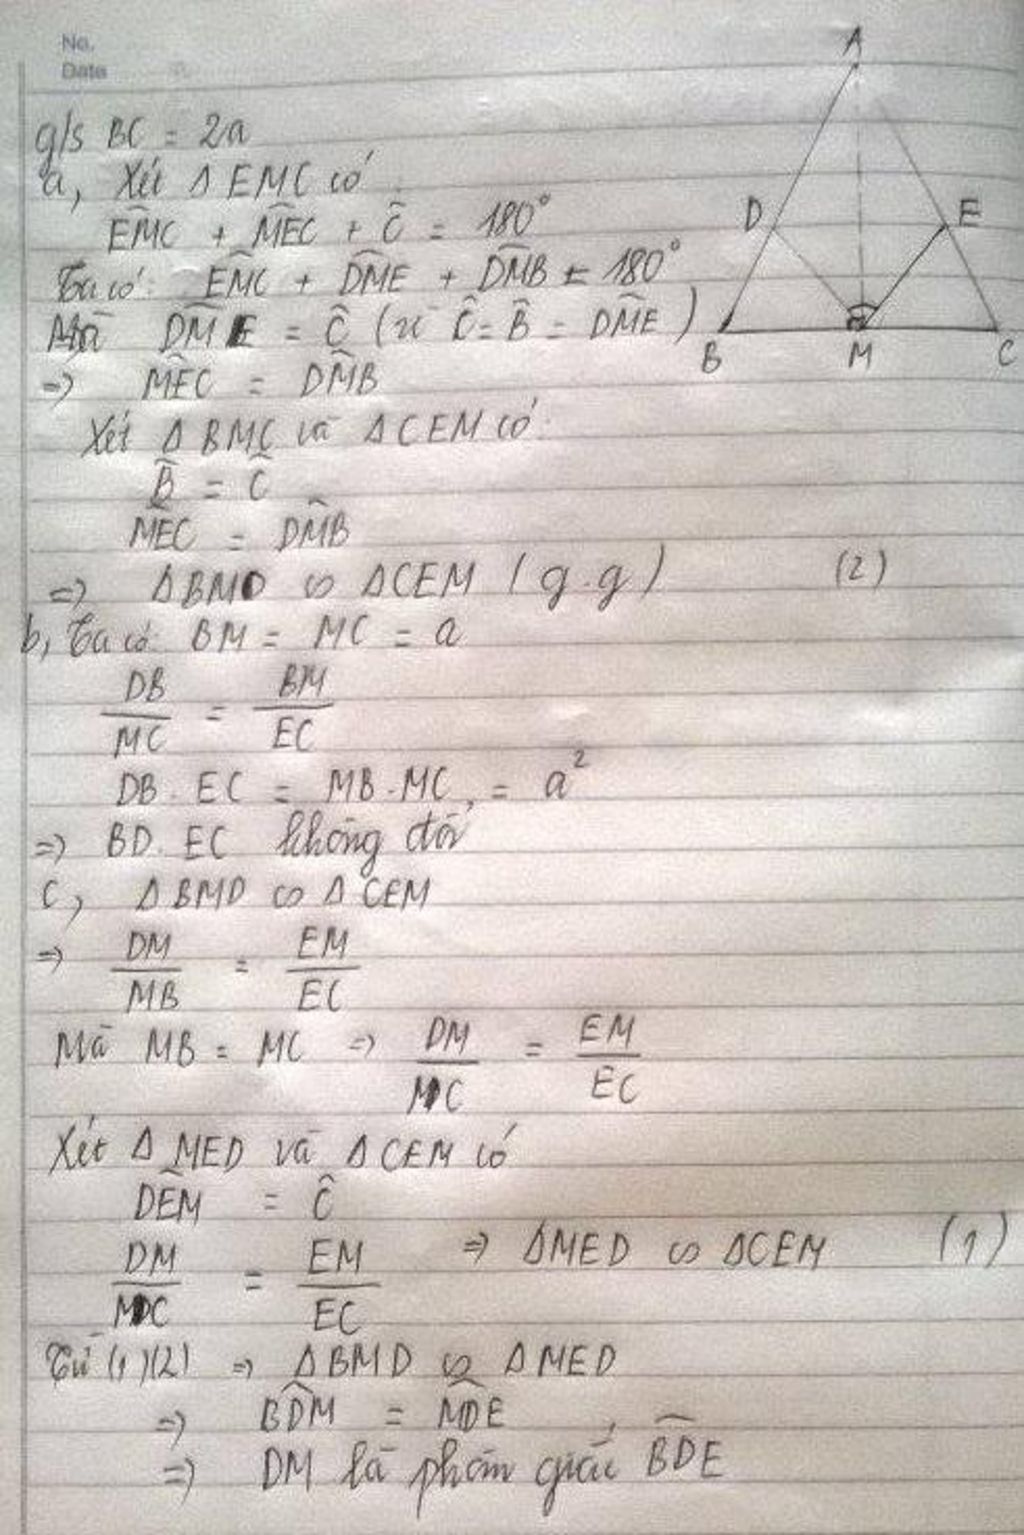 No.
Date
g/s BC = 2a
a, Xét Δ EMC có
EMC + MEC + Ĉ = 180°
Ta có: EMC + DME + DMB = 180°
Mà DME = Ĉ (vì Ĉ = B̂ = DME)
=> MEC = DMB
Xét Δ BMC và Δ CEM có
B̂ = Ĉ
MEC = DMB
=> Δ BMD ∽ Δ CEM (g.g) (2)
b, Ta có BM = MC = a
DB/MC = BM/EC
DB . EC = MB . MC = a²
=> BD. EC không đổi
c, Δ BMD ∽ Δ CEM
=> DM/MB = EM/EC
Mà MB = MC => DM/MC = EM/EC
Xét Δ MED và Δ CEM có
DEM = Ĉ
DM/MC = EM/EC => Δ MED ∽ Δ CEM (1)
Từ (1)(2) => Δ BMD ∽ Δ MED
=> BDM = MDE
=> DM là phân giác BDE
A
D
E
B
M
C